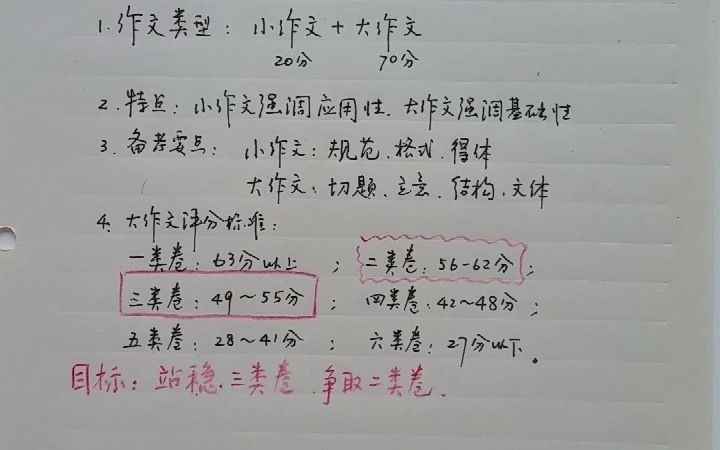 1.作文类型：小作文+大作文
20分 70分
2.特点：小作文强调应用性.大作文强调基础性
3.备考要点：小作文：规范.格式.得体
大作文：切题.立意.结构.文体
4.大作文评分标准：
一类卷：63分以上；二类卷：56-62分；
三类卷：49～55分；四类卷：42～48分；
五类卷：28～41分；六类卷：27分以下。
目标：站稳.三类卷.争取二类卷.